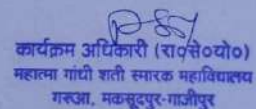 कार्यक्रम अधिकारी (रा०से०यो०)
महात्मा गांधी शती स्मारक महाविद्यालय
गरूआ, मकसूदपुर-गाजीपुर